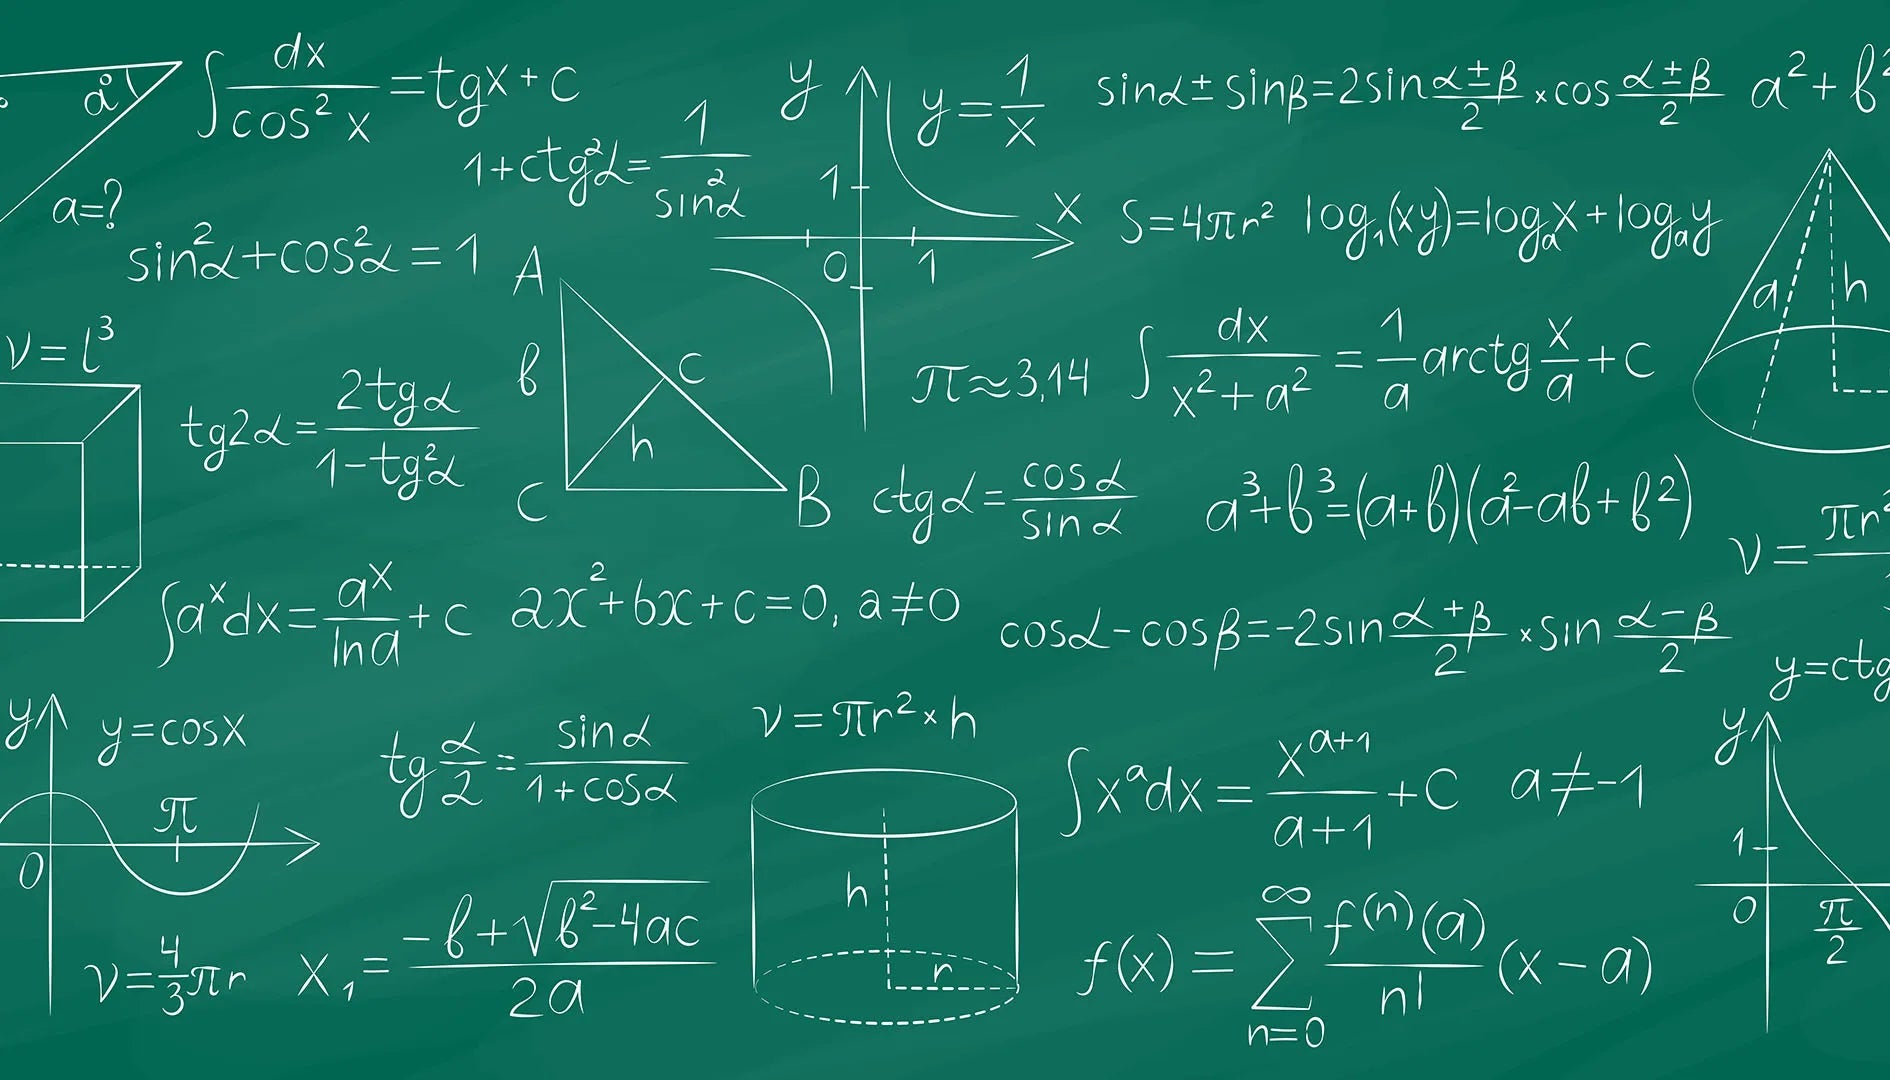 å
a=?
∫ dx/cos² x = tgx + c
1+ctg²α = 1/sin²α
sin²α+cos²α = 1
y
y = 1/x
1
x
0
1
sinα ± sinβ = 2sin (α±β)/2 × cos (α±β)/2
a² + b²
S = 4πr²
log₁(xy) = logₐx + logₐy
a
h
v = l³
tg2α = 2tgα/(1-tg²α)
A
b
c
h
C
B
π ≈ 3,14
∫ dx/(x² + a²) = 1/a arctg x/a + c
ctgα = cosα/sinα
a³+b³=(a+b)(a²-ab+b²)
v = πr²
∫aˣdx = aˣ/lna + c
2x²+bx+c=0, a≠0
cosα - cosβ = -2sin (α+β)/2 × sin (α-β)/2
y=ctg
y
y=cosx
π
0
tg α/2 = sinα/(1+cosα)
v = πr² × h
h
r
∫xᵃdx = xᵃ⁺¹/(a+1) + C a≠-1
y
1
0
π/2
v = 4/3 πr
x₁ = (-b+√(b²-4ac))/2a
f(x) = ∑ₙ₌₀^∞ f⁽ⁿ⁾(a)/n! (x - a)